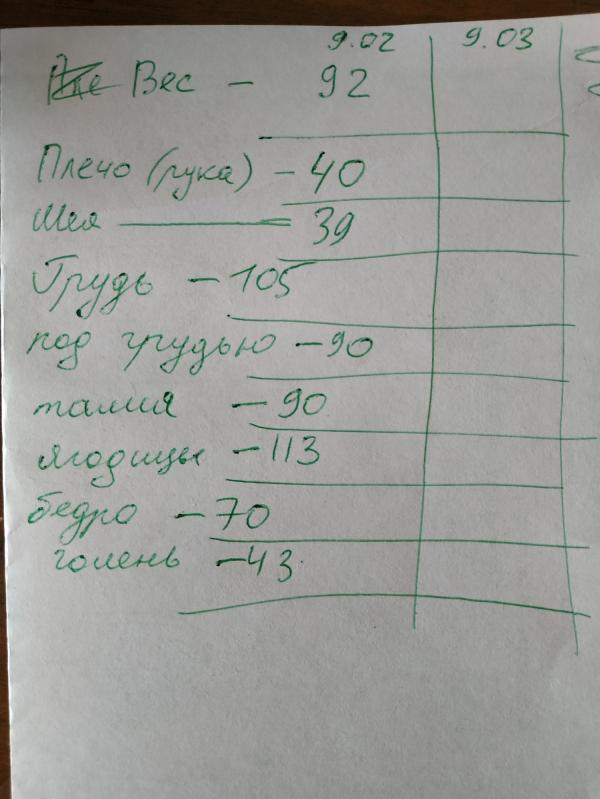 9.02 9.03
Вес - 92
Плечо (рука) - 40
Шея - 39
Грудь - 105
под грудью - 90
талия - 90
ягодицы - 113
бедро - 70
голень - 43